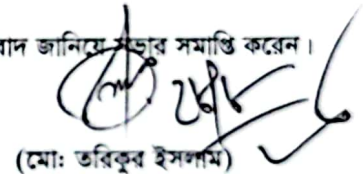 বাদ জানিয়ে সভার সমাপ্তি করেন।
(মোঃ তরিকুর ইসলাম)